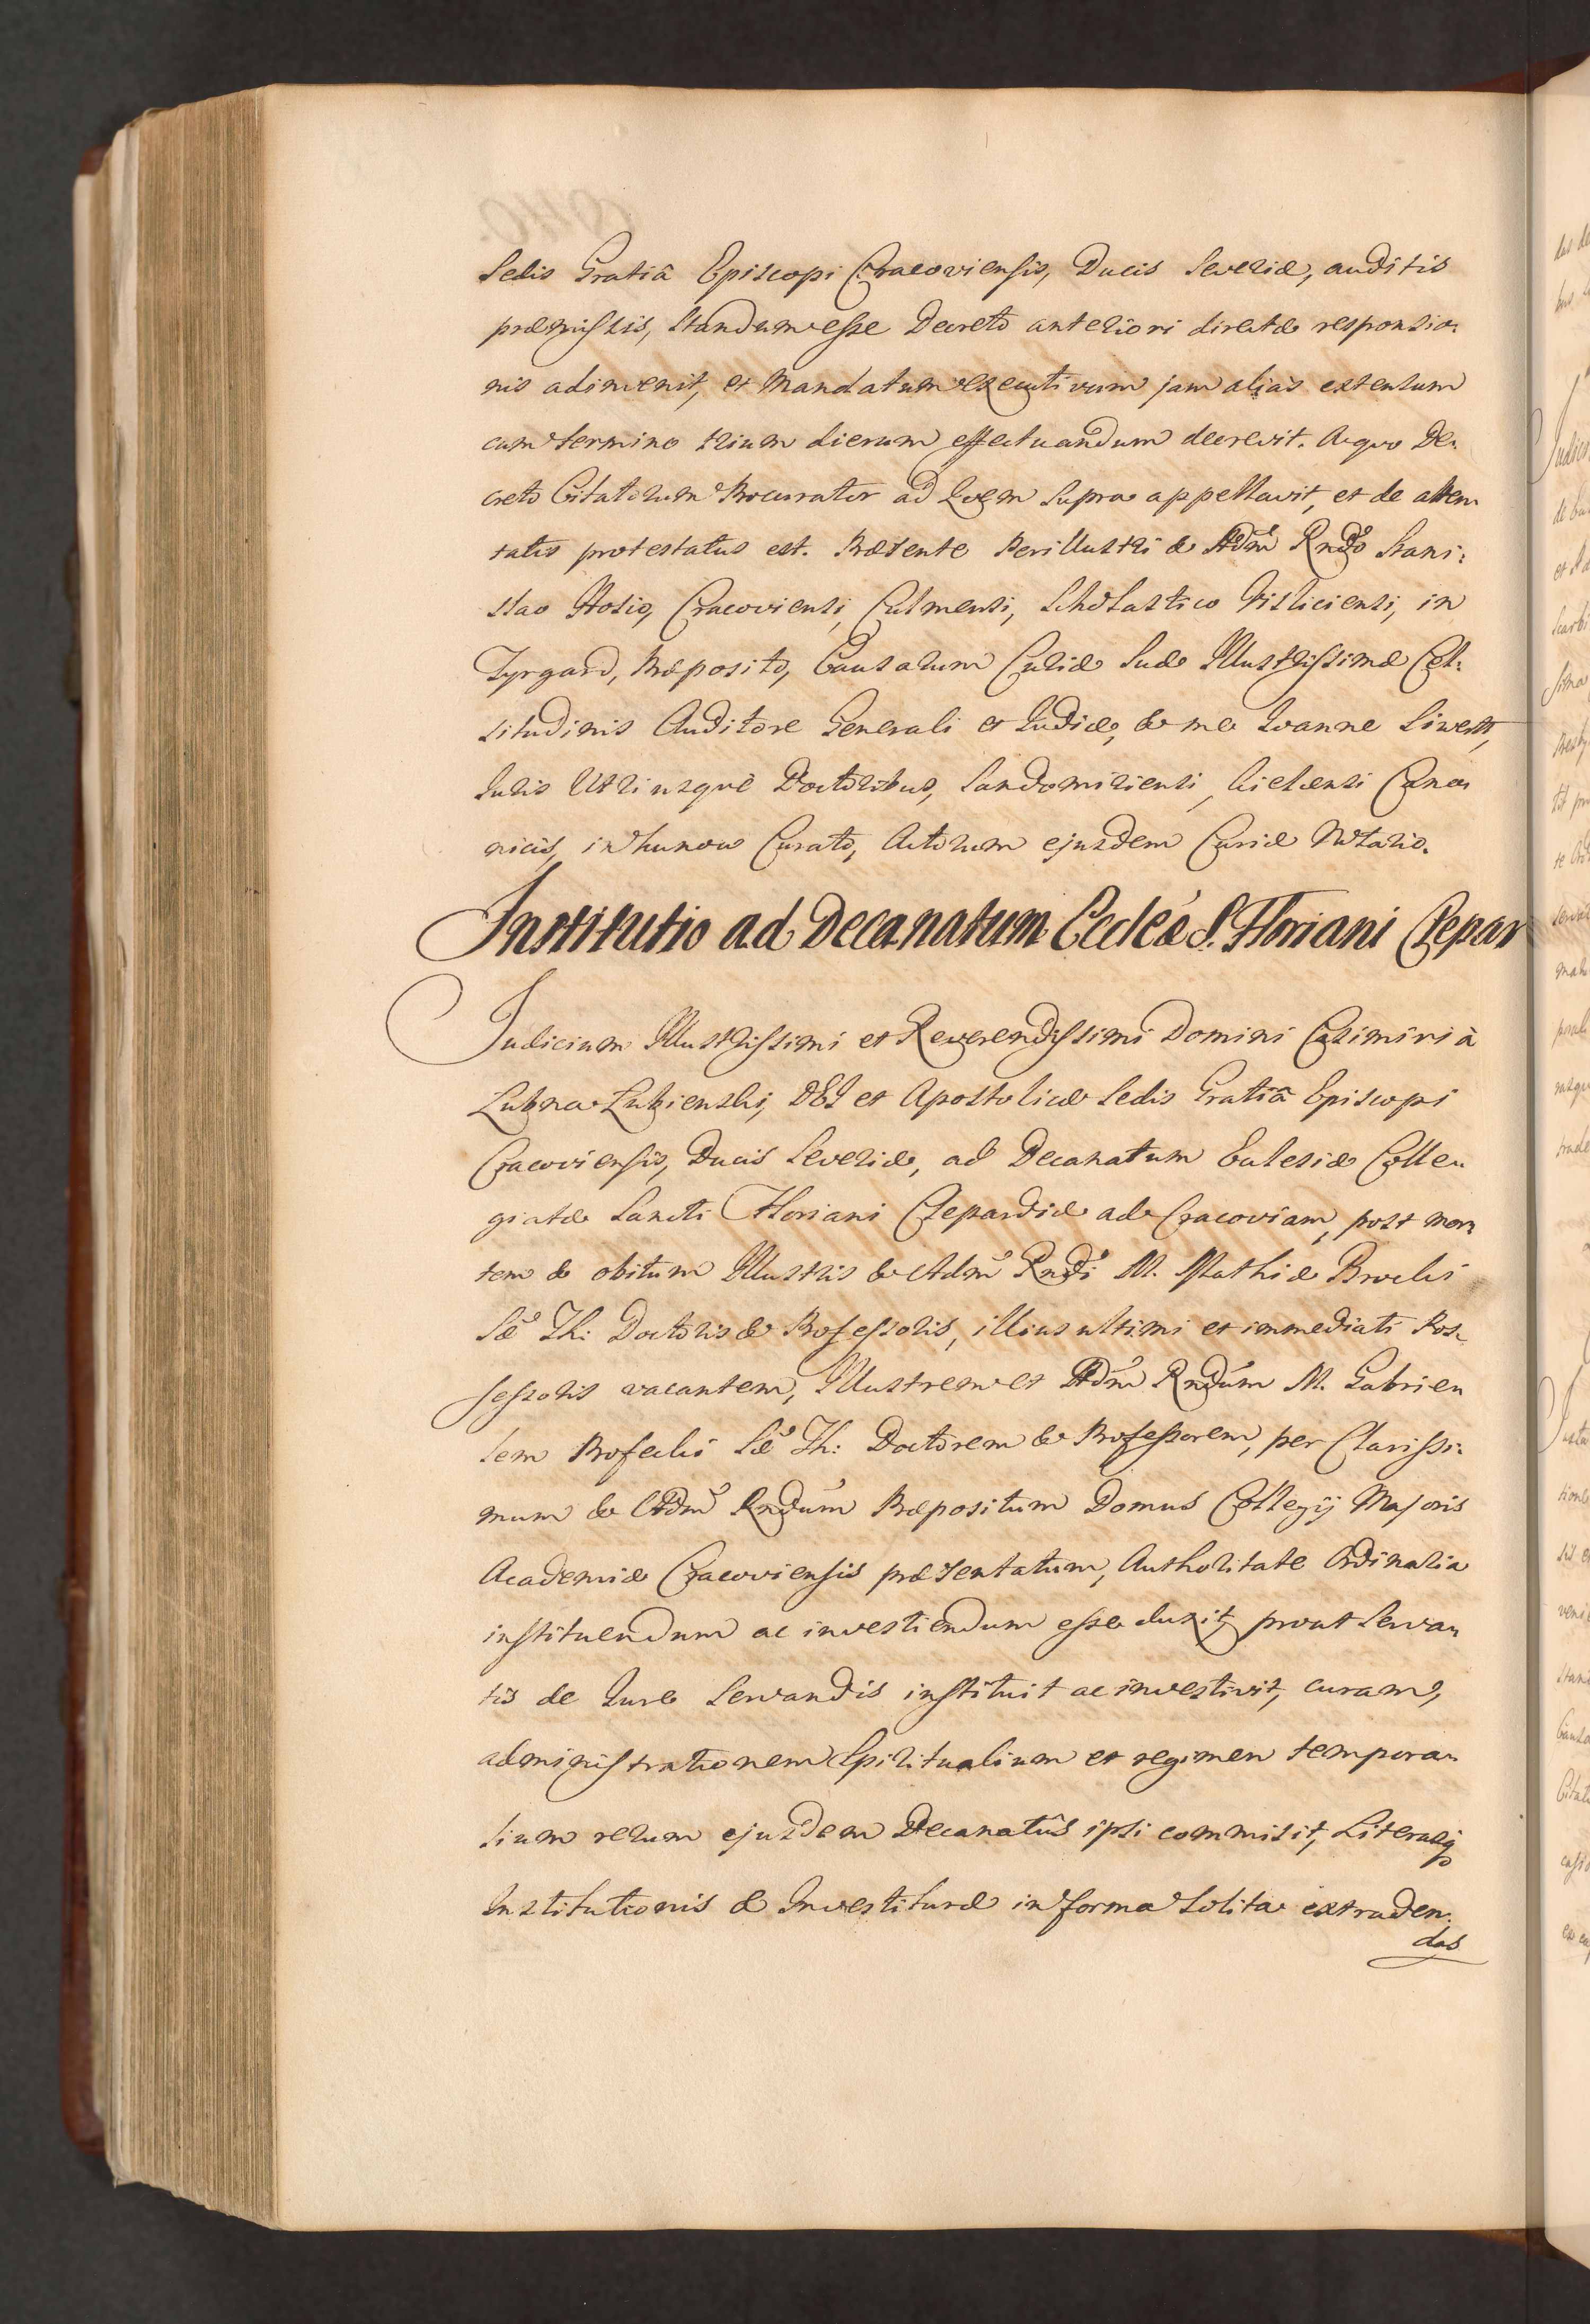 Sedis Gratiâ Episcopi Cracoviensis, Ducis Severiæ, auditis
præmissis, standum esse Decreto anteriori directæ responsio-
nis adinvenit, et Mandatum executivum jam alias extensum
cum termino trium dierum effectuandum decrevit. A quo De-
creto Citatorum Procurator ad Quem supra appellavit, et de atten-
tatis protestatus est. Præsente Perillustri & Adm̃ Rñdo Stani-
slao Hosio, Cracoviensi, Culmensi, Scholastico Visliciensi, in
Zyrgard, Præposito, Causarum Curiæ Suæ Illustrissimæ Cel-
situdinis Auditore Generali et Judice, & me Joanne Siwestt,
Juris Utriusque Doctoribus, Sandomiriensi, Kielcensi Cano-
nicis, in Curato, Actorum ejusdem Curiæ Notario.
Institutio ad Decanatum Ecclẽæ S. Floriani Clepar
Judicium Illustrissimi et Reverendissimi Domini Casimiri à
Lubna Lubienski, DEI et Apostolicæ Sedis Gratiâ Episcopi
Cracoviensis, Ducis Severiæ, ad Decanatum Ecclesiæ Colle-
giatæ Sancti Floriani Clepardiæ ad Cracoviam, post mor-
tem & obitum Illustris & Adm̃ Rñdi M. Mathiæ Brocki
Sæ Th: Doctoris & Professoris, illius ultimi et immediati Pos-
sessoris vacantem, Illustrem et Adm̃ Rñdum M. Gabrie-
lem Profecki Sæ Th: Doctorem & Professorem, per Clarissi-
mum & Adm̃ Rñdum Præpositum Domus Collegij Majoris
Academiæ Cracoviensis præsentatum, Authoritate Ordinaria
instituendum ac investiendum esse duxit, prout Serva-
tis de Jure Servandis instituit ac investivit, curam,
administrationem Spiritualium et regimen tempora-
lium rerum ejusdem Decanatûs ipsi commisit, Literasq
Institutionis & Investituræ in forma solita extraden-
das